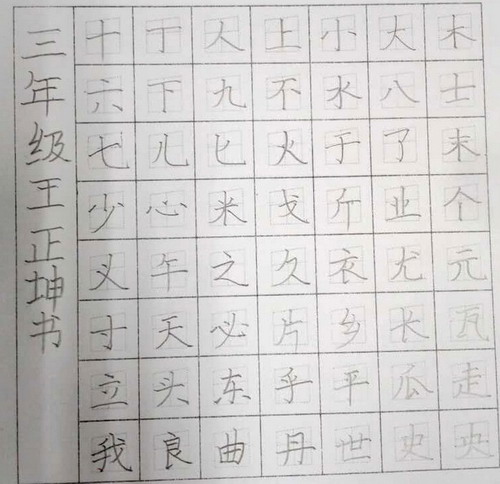 三年级王正坤书
十丁人上小大木
六下九不水八士
七儿匕火于了末
少心米戈斤业个
义午之久衣尤元
寸天必片乡长瓦
立头东乎平瓜走
我良曲丹世史央